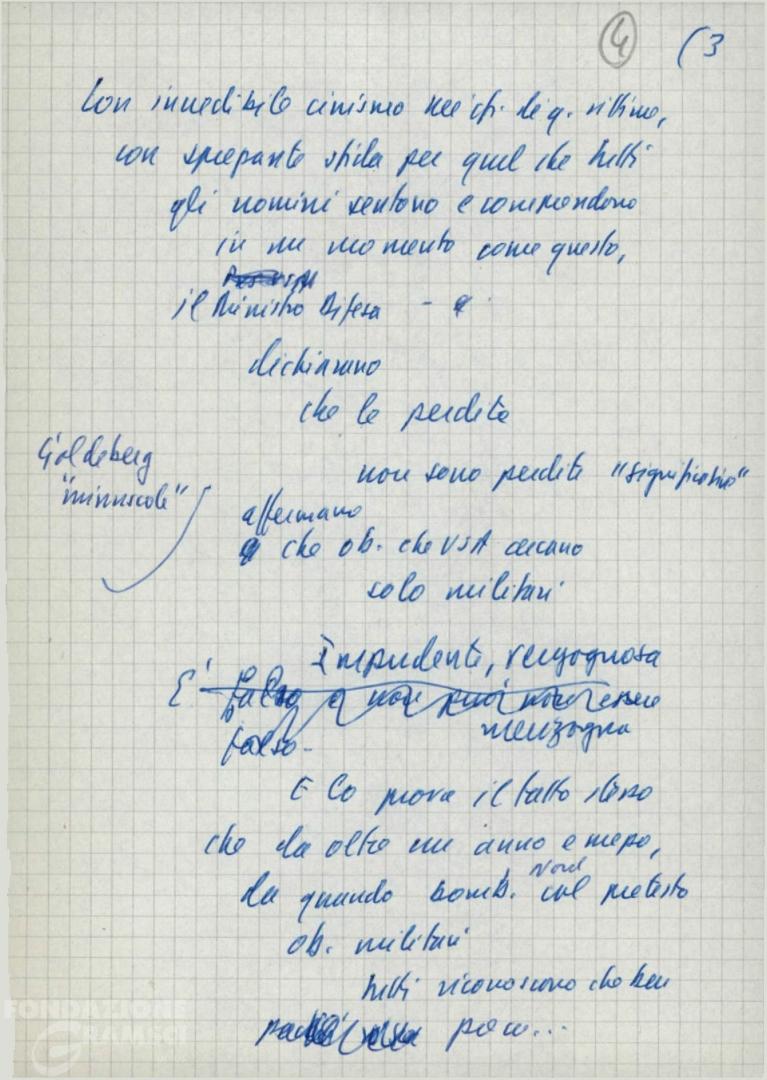 4 (3
Con incredibile cinismo nei cfr. di q. vittime,
con sprezzante sfida per quel che tutti
gli uomini sentono e comprendono
in un momento come questo,
il Ministro Difesa -
dichiarano
che le perdite
non sono perdite "significative"
Goldeberg
"minuscole"
affermano
che ob. che USA cercano
solo militari
Impudente, vergognosa
E' falso e non può non essere
menzogna
falso -
E lo prova il fatto stesso
che da oltre un anno e mezzo,
Nord
da quando bomb. col pretesto
ob. militari
tutti riconoscono che ben
poco...
FONDAZIONE
GRAMSCI